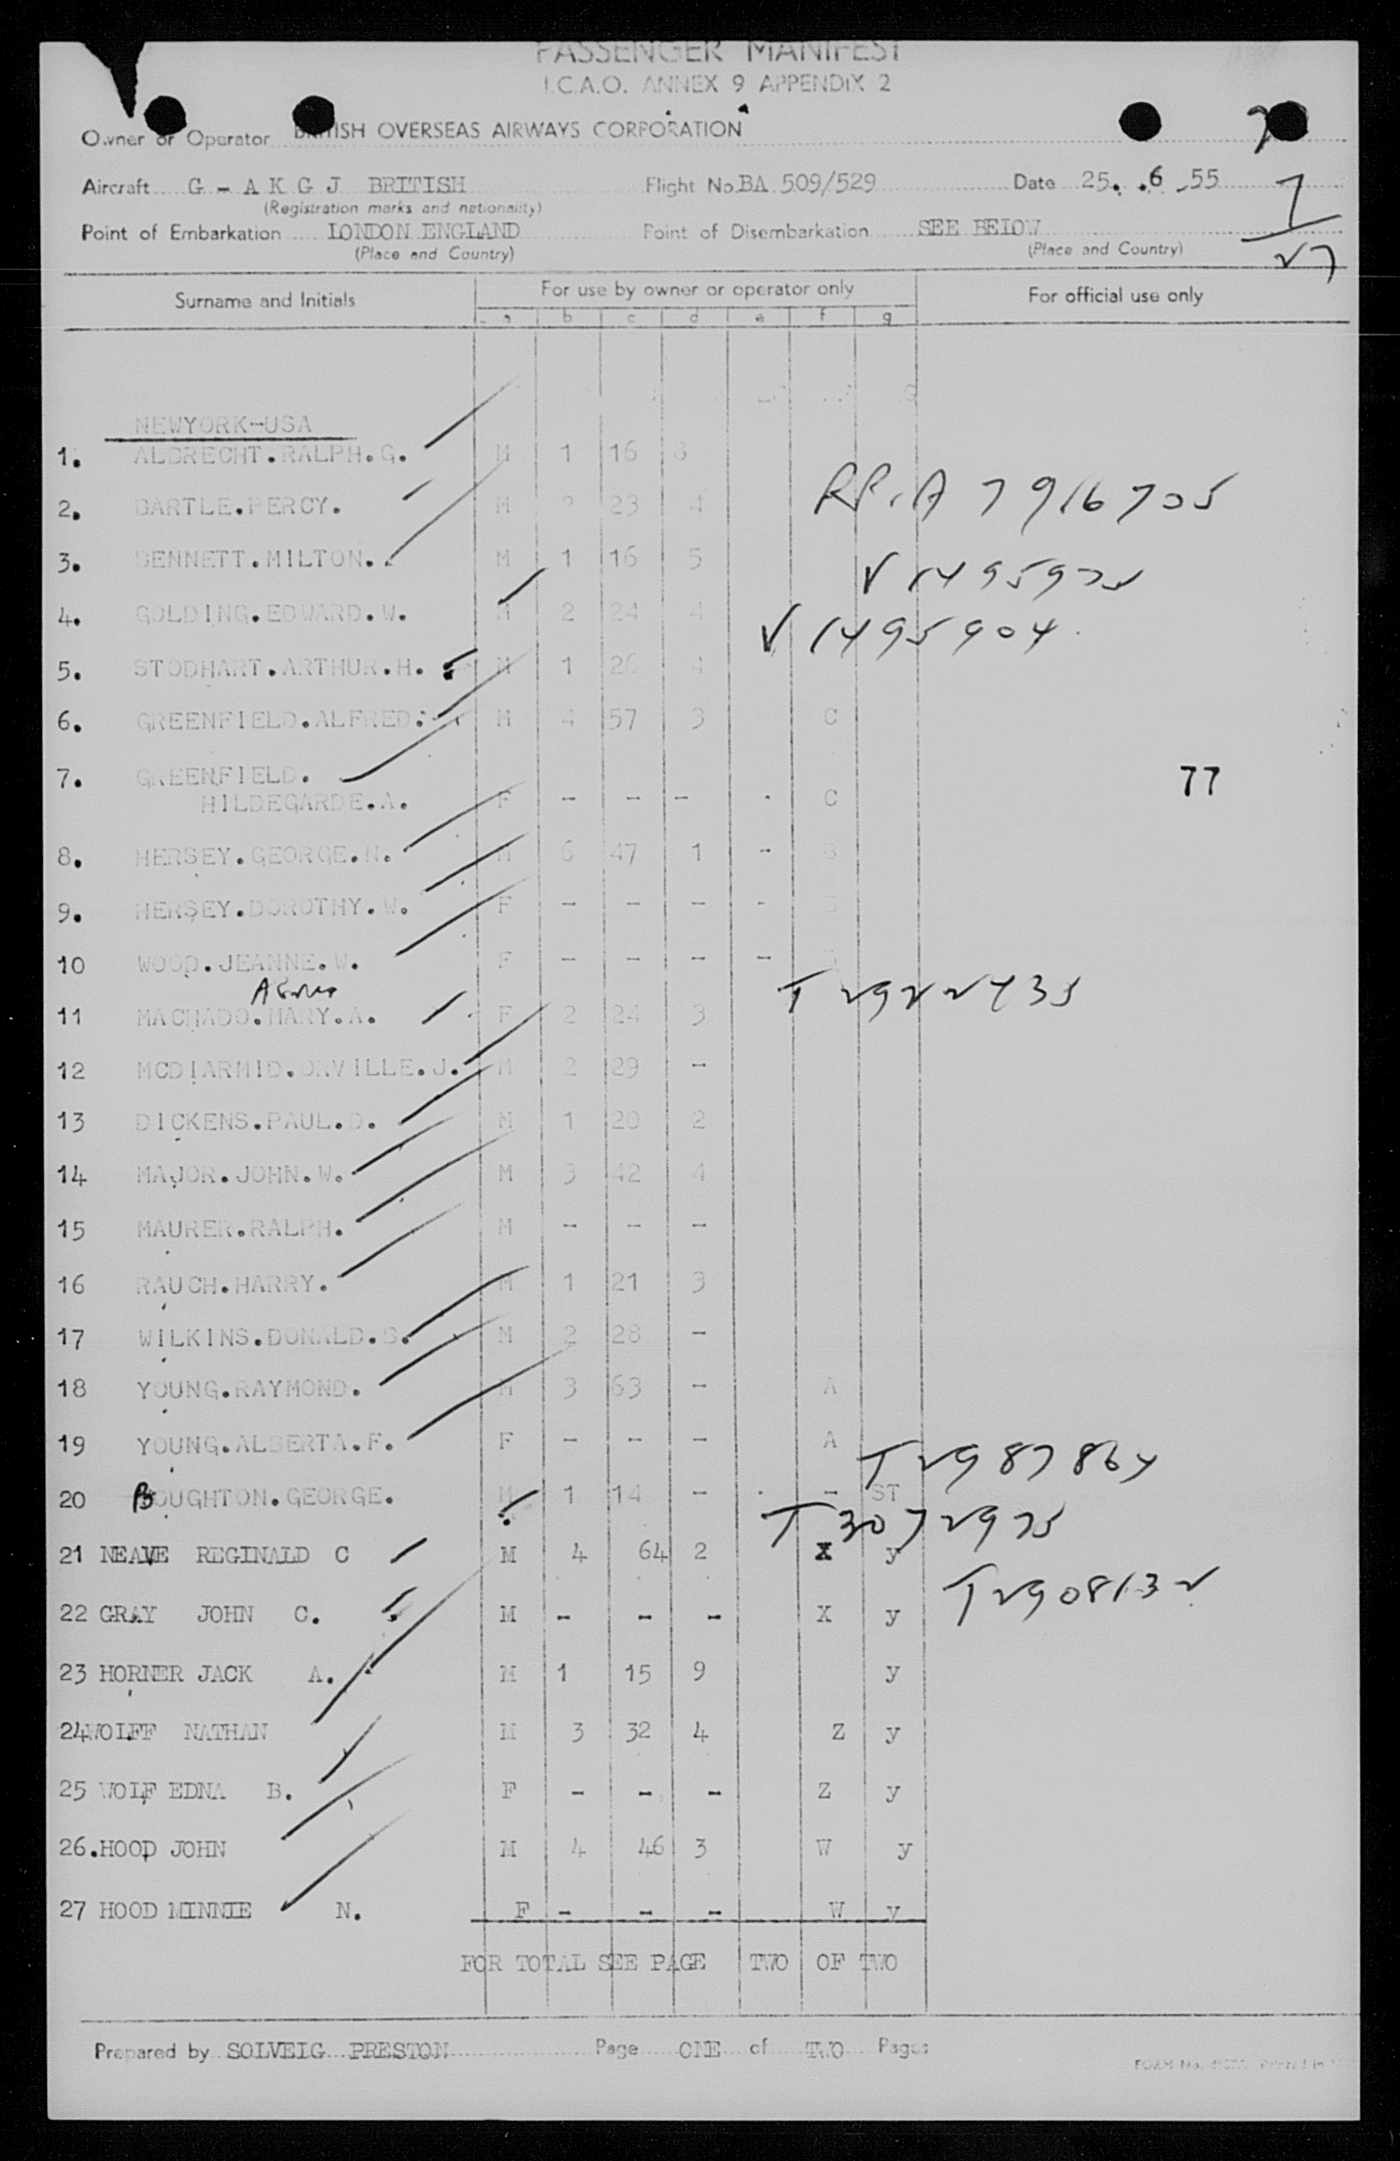 PASSENGER MANIFEST
I.C.A.O. ANNEX 9 APPENDIX 2
Owner or Operator BRITISH OVERSEAS AIRWAYS CORPORATION
Aircraft G - A K G J BRITISH Flight No. BA 509/529 Date 25. .6 .55
(Registration marks and nationality)
Point of Embarkation LONDON ENGLAND Point of Disembarkation SEE BELOW
(Place and Country) (Place and Country)
27
Surname and Initials For use by owner or operator only For official use only
a b c d e f g
NEWYORK-USA
1. ALBRECHT.RALPH.G. M 1 16 3
2. BARTLE.PERCY. M 2 23 4 A 7916705
3. BENNETT.MILTON. M 1 16 5 V 1495975
4. GOLDING.EDWARD.W. M 2 24 4 V 1495904
5. STODHART.ARTHUR.H. M 1 26 4
6. GREENFIELD.ALFRED. M 4 57 3 C
7. GREENFIELD.
HILDEGARDE.A. F - - - C
77
8. HERSEY.GEORGE.N. M 6 47 1 -
9. HERSEY.DOROTHY.W. F - - - -
10 WOOD.JEANNE.W. F - - - -
11 MACHADO.MARY.A. F 2 24 3 T 2922435
12 MCDIARMID.ORVILLE.J. M 2 29 -
13 DICKENS.PAUL.D. M 1 20 2
14 MAJOR.JOHN.W. M 3 42 4
15 MAURER.RALPH. M - - -
16 RAUCH.HARRY. M 1 21 3
17 WILKINS.DONALD.S. M 2 28 -
18 YOUNG.RAYMOND. M 3 63 - A
19 YOUNG.ALBERTA.F. F - - - A
20 BOUGHTON.GEORGE. M 1 14 - - ST T 2987864
21 NEAVE REGINALD C M 4 64 2 X y T 3072975
22 GRAY JOHN C. M - - - X y T 2908132
23 HORNER JACK A. M 1 15 9 y
24 WOLFF NATHAN M 3 32 4 Z y
25 WOLF EDNA B. F - - - Z y
26. HOOD JOHN M 4 46 3 W y
27 HOOD MINNIE N. F - - - W y
FOR TOTAL SEE PAGE TWO OF TWO
Prepared by SOLVEIG PRESTON Page ONE of TWO Pages